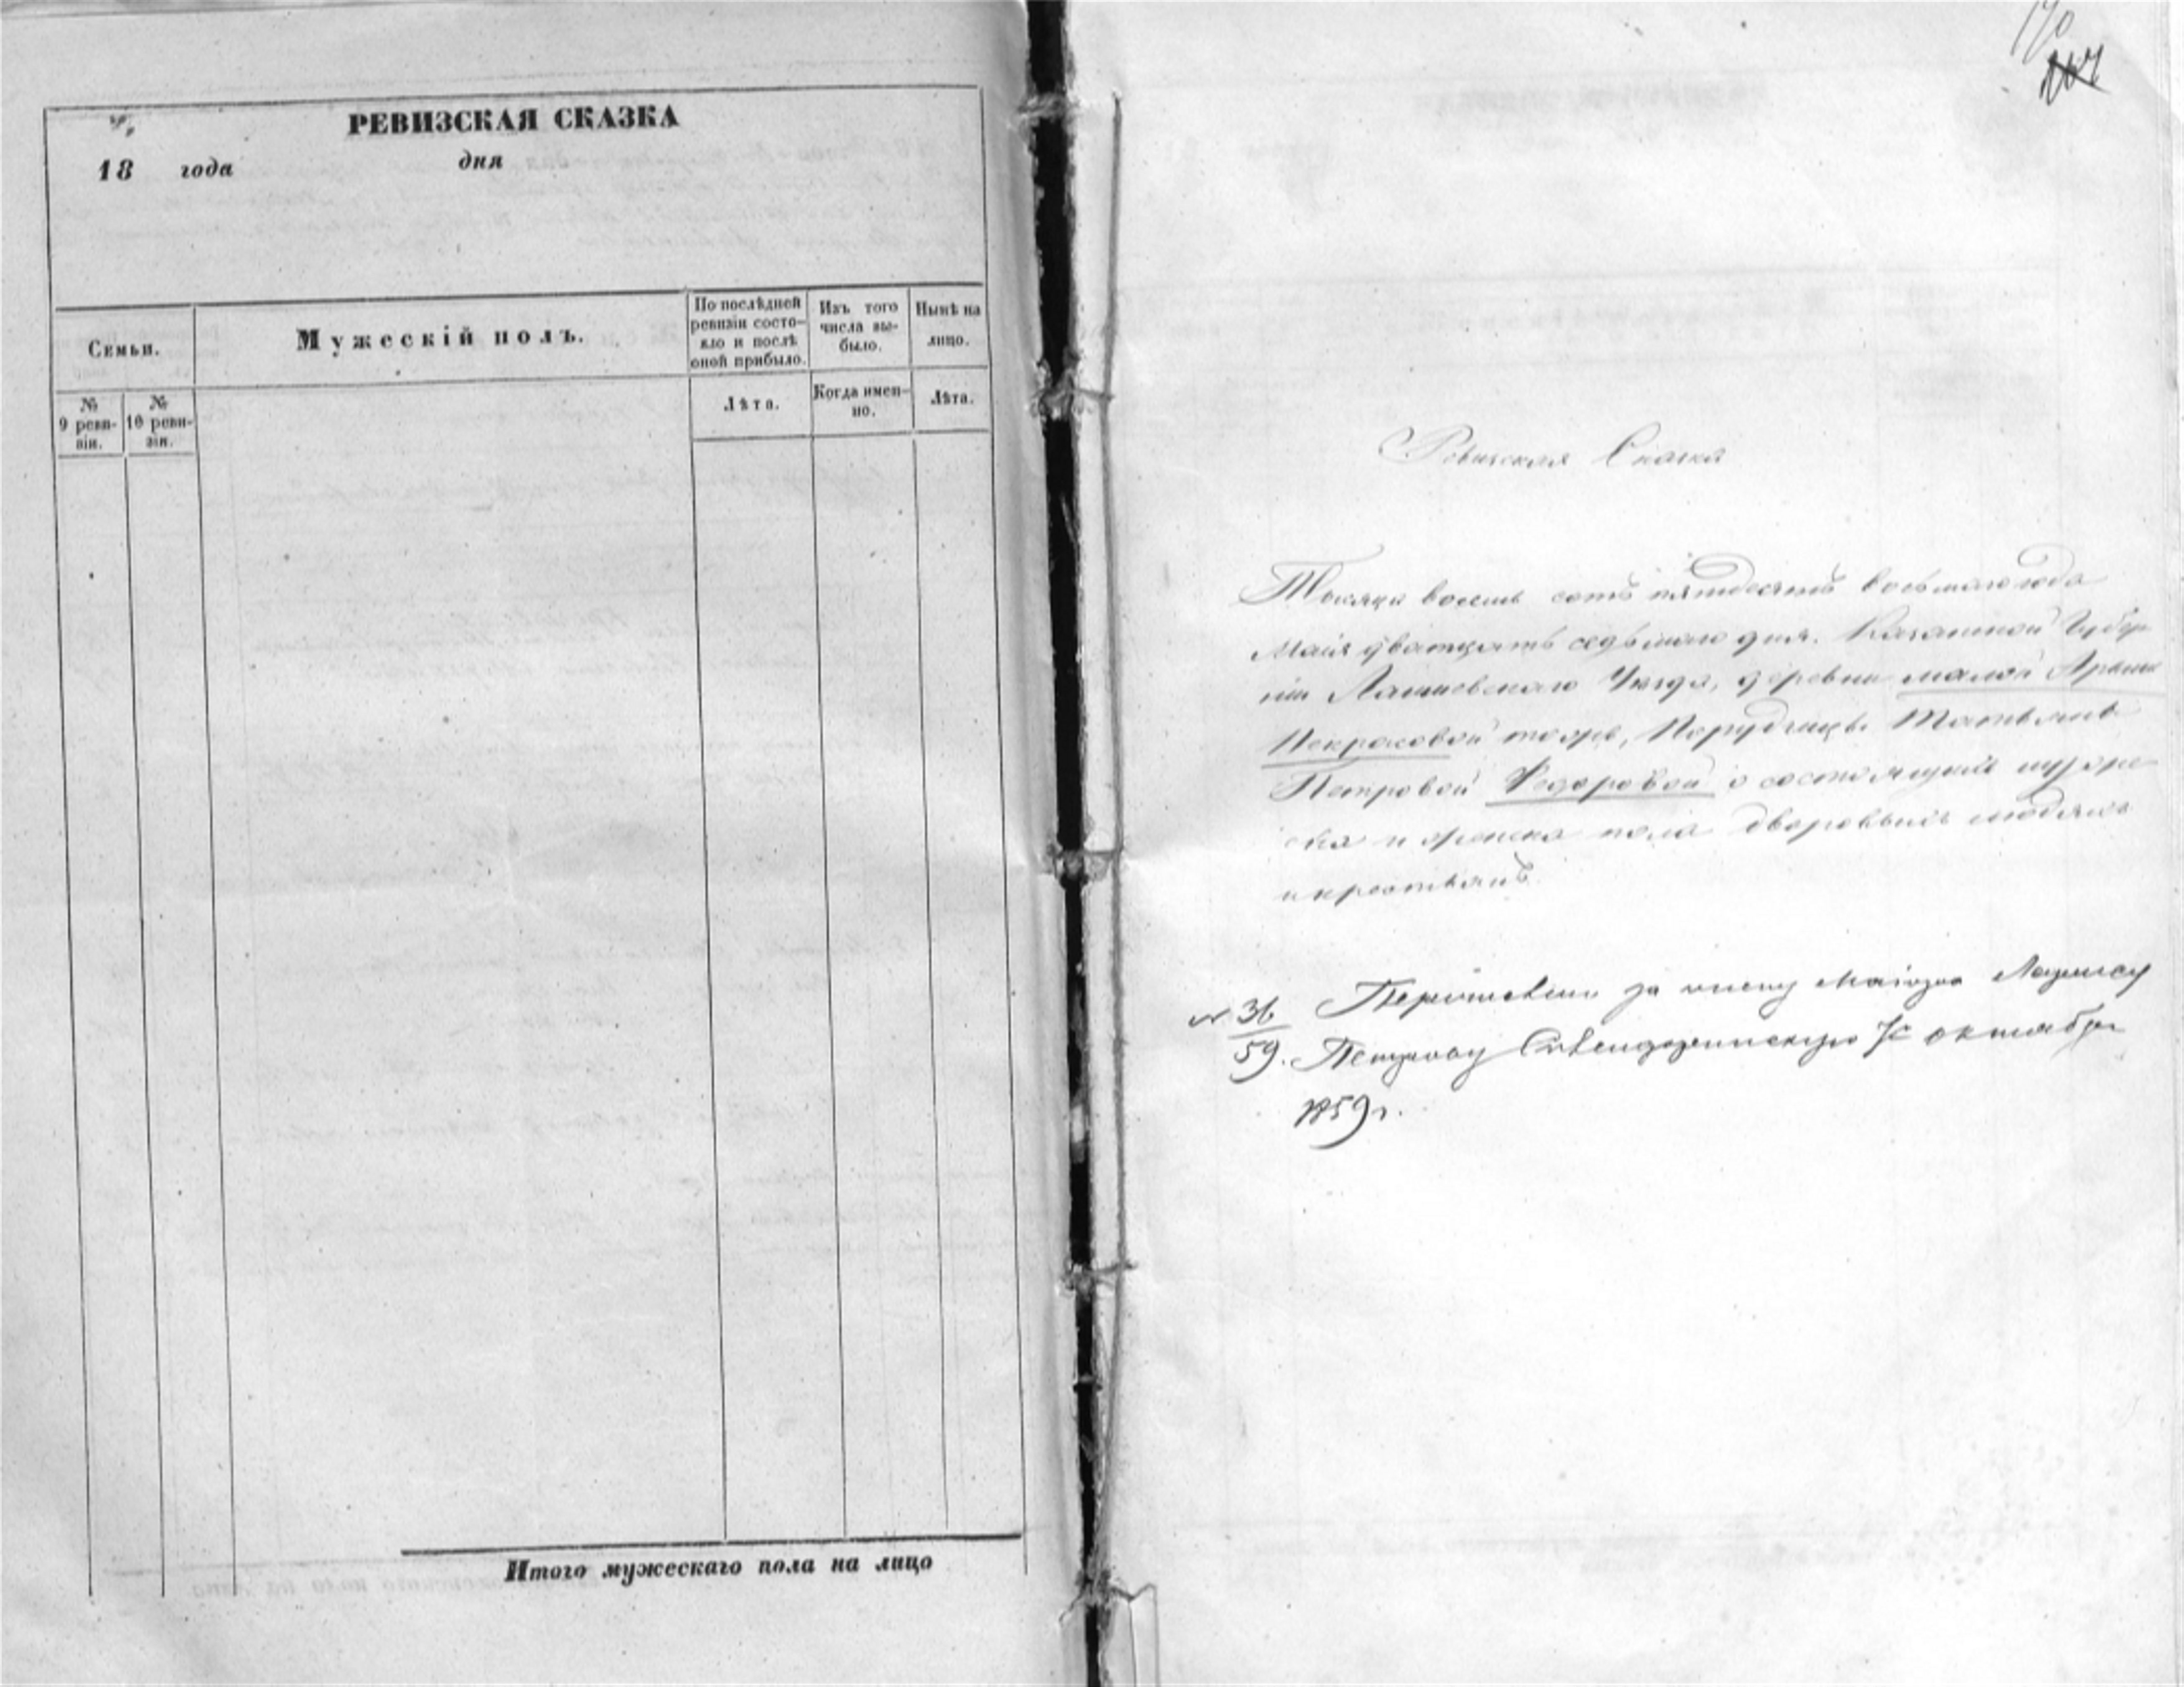 РЕВИЗСКАЯ СКАЗКА
18 года дня
Семьи.
Мужескій полъ.
По послѣдней
ревизіи состо-
яло и послѣ
оной прибыло.
Изъ того
числа вы-
было.
Нынѣ на
лицо.
№
9 реви-
зіи.
№
10 реви-
зіи.
Лѣта.
Когда имен-
но.
Лѣта.
Итого мужескаго пола на лицо
170
Ревизская Сказка
Тысяча восемь сотъ пятдесятъ восьмаго года
Маія дватцать седьмаго дня. Казанской Губер
ніи Лаишевскаго Уезда, деревни малой
Некрасовой тожъ, Татьяны
Петровой Федоровой о состоящихъ мужес
ка и женска пола дворовыхъ людяхъ
и крестьянъ.
№ 36
59.
за
Петрову октября
1859 г.